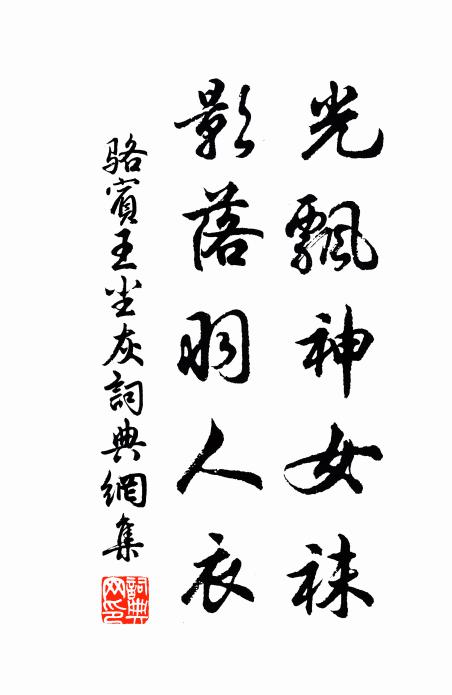 光飄神女袜
影落羽人衣
駱賓王尘灰詞典網集
詞典
网印